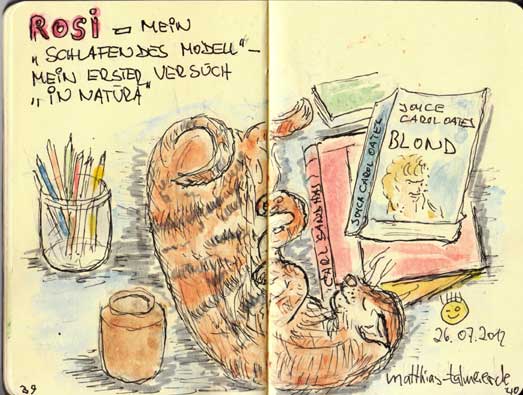 ROSI – MEIN
„SCHLAFENDES MODELL" –
MEIN ERSTER VERSUCH
„IN NATURA"
JOYCE
CAROL OATES
BLOND
JOYCE CAROL OATES
CARL
26.07.2012
39
40